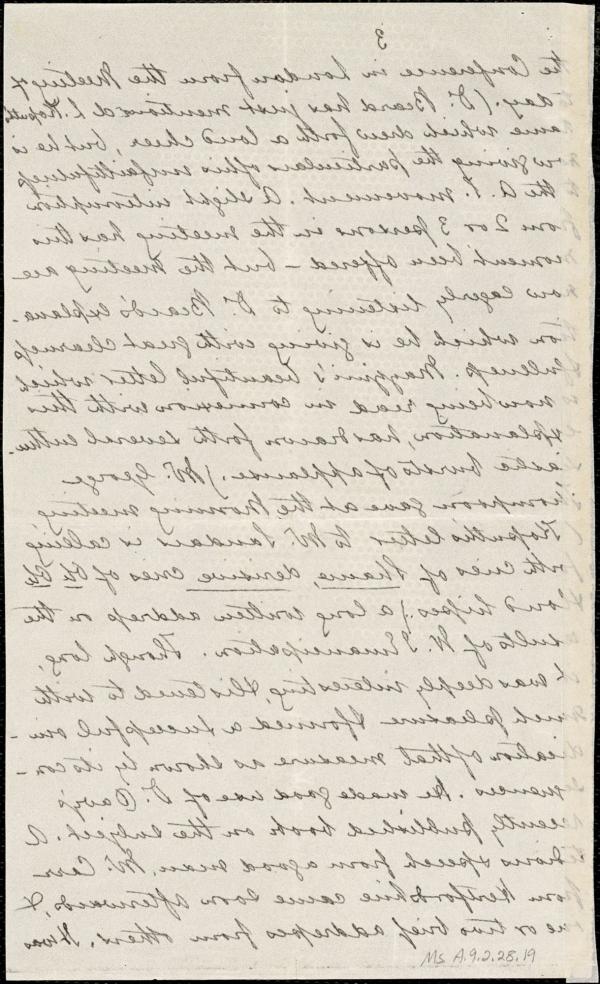 3
the Conference in London from the Meeting of
day. (Dr. Beard has just mentioned L. Kossuth's
ame which drew forth a loud cheer, but he is
ow giving the particulars of his unfaithfulness
the A. S. movement. A slight interruption
om 2 or 3 persons in the meeting has this
moment been offered – but the Meeting are
ow eagerly listening to Dr. Beard's explana-
on which he is giving with great clearness
fulness. Mazzini's beautiful letter which
now being read in connexion with this
explanation, has drawn forth several enthu-
iastic bursts of applause.) Mr. George
Thompson gave at the Morning meeting
Kossuth's letter to Mr. Sandais is calling
orth cries of Shame, derisive cries of Oh Oh
loud hisses.) a long written address on the
sults of W. I. Emancipation. Though long,
it was deeply interesting, & listened to with
uch pleasure & formed a successful vin-
dication of that measure as shown by its con-
quences. He made good use of Dr. Davy's
recently published book on the subject. A
speech from a good man, Mr. Carr
from Hertfordshire came soon afterwards, &
one or two brief addresses from others. It was
Ms. A.9.2.28.19